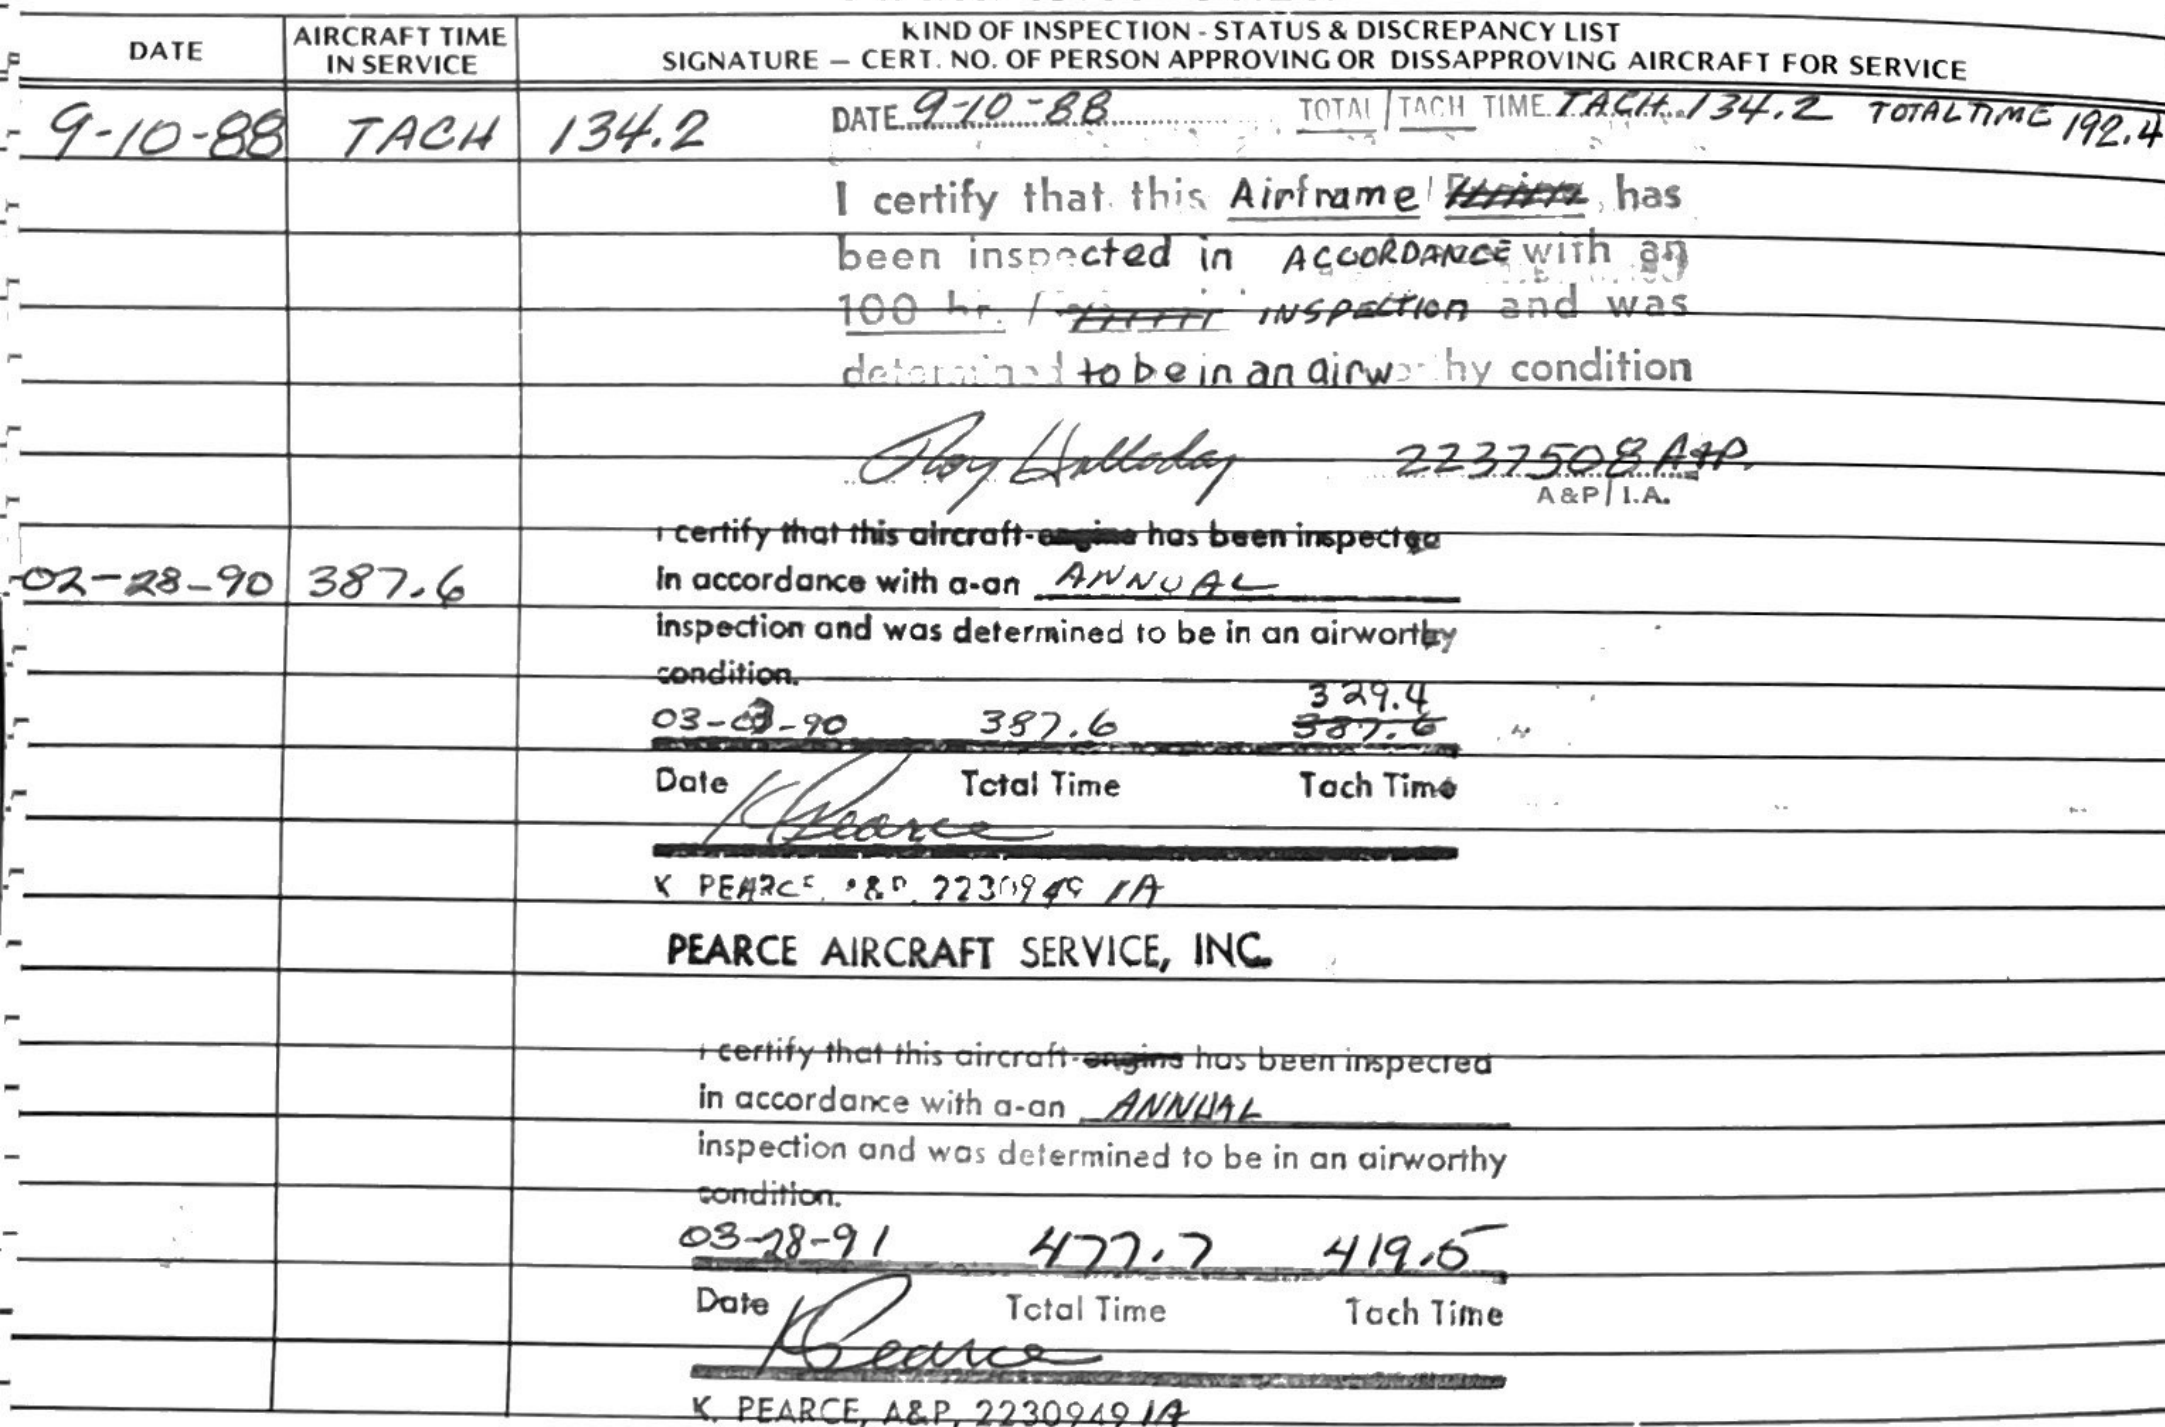 DATE AIRCRAFT TIME IN SERVICE KIND OF INSPECTION - STATUS & DISCREPANCY LIST
SIGNATURE — CERT. NO. OF PERSON APPROVING OR DISSAPPROVING AIRCRAFT FOR SERVICE
9-10-88 TACH 134.2 DATE 9-10-88 TOTAL / TACH TIME TACH 134.2 TOTAL TIME 192.4
I certify that this Airframe / has
been inspected in ACCORDANCE with an
100 hr. / INSPECTION and was
determined to be in an airworthy condition
Roy Halladay 2237508 A+P.
A&P / I.A.
I certify that this aircraft-engine has been inspected
02-28-90 387.6 In accordance with a-an ANNUAL
inspection and was determined to be in an airworthy
condition.
329.4
03- -90 387.6 387.6
Date Total Time Tach Time
K Pearce
K PEARCE, A&P, 2230949 IA
PEARCE AIRCRAFT SERVICE, INC.
I certify that this aircraft-engine has been inspected
in accordance with a-an ANNUAL
inspection and was determined to be in an airworthy
condition.
03-28-91 477.7 419.5
Date Total Time Tach Time
K Pearce
K. PEARCE, A&P, 2230949 IA